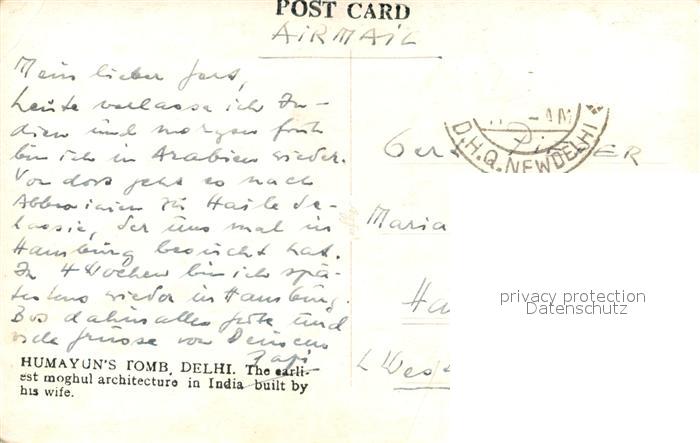 POST CARD
AIRMAIL
Mein lieber Gert,
heute verlasse ich In-
dien und morgen früh
bin ich in Arabien wieder.
Von dort geht es nach
Abbessinien zu Haile Se-
lassie, der uns mal in
Hamburg besucht hat.
In 4 Wochen bin ich spä-
testens wieder in Hamburg.
Bis dahin alles Gute und
viele Grüsse von Deinem
Papi
HUMAYUN'S TOMB, DELHI. The earli-
est moghul architecture in India built by
his wife.
-AM
D.H.Q. NEW DELHI
Ger
ER
Maria
Ha
West
privacy protection
Datenschutz